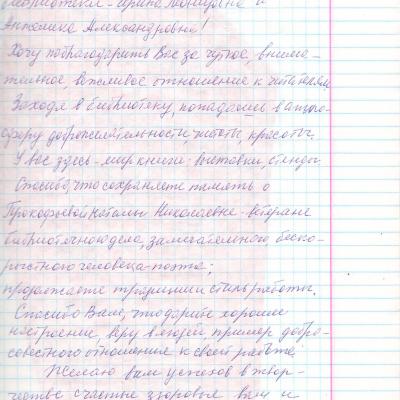 библиотеки - Ирина Леонидовна и
Анжелика Александровна!
Хочу поблагодарить Вас за чуткое, внима-
тельное, вежливое отношение к читателям.
Заходя в библиотеку, попадаешь в атмо-
сферу доброжелательности, чистоты, красоты.
У вас здесь - мир книги: выставки, стенды
Спасибо, что сохраняете память о
Прокофьевой Наталье Николаевне - ветеране
библиотечного дела, замечательного беско-
рыстного человека-поэта;
продолжаете традиции и стиль работы.
Спасибо Вам, что дарите хорошее
настроение, веру в людей пример добро-
совестного отношения к своей работе.
Желаю вам успехов в твор-
честве счастья здоровья вам и